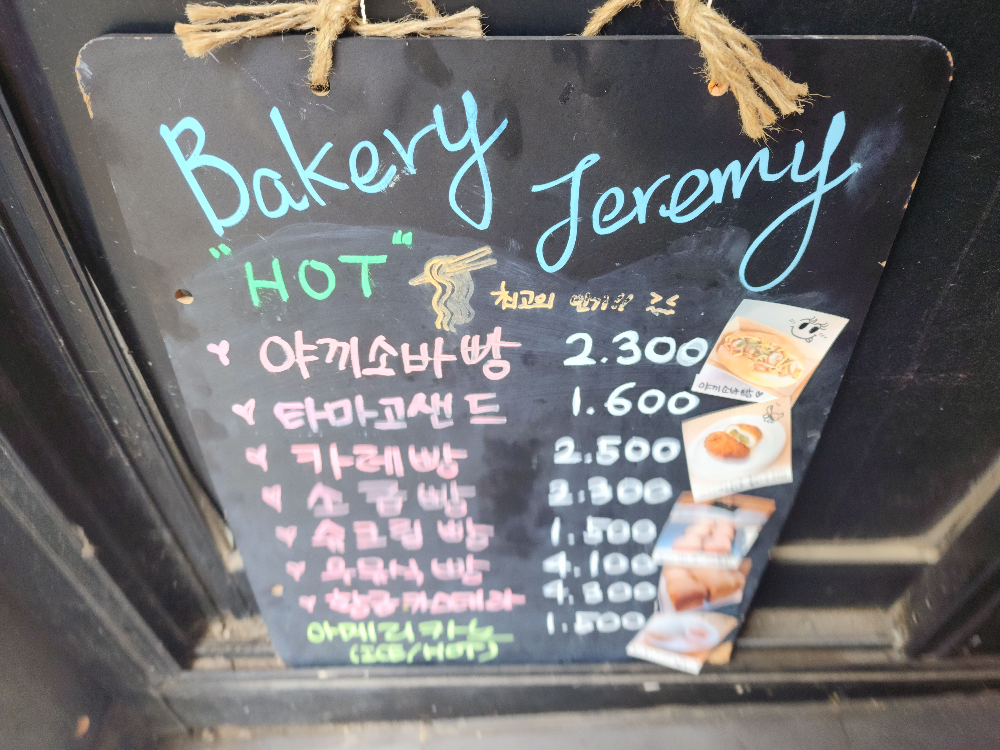 Bakery Jeremy
"HOT"
최고의 인기!!
야끼소바빵 2.300
타마고샌드 1.600
카레빵 2.500
소금빵 2.300
빵 1.500
빵 4.100
카스테라
아메리카노 1.500
야끼소바빵